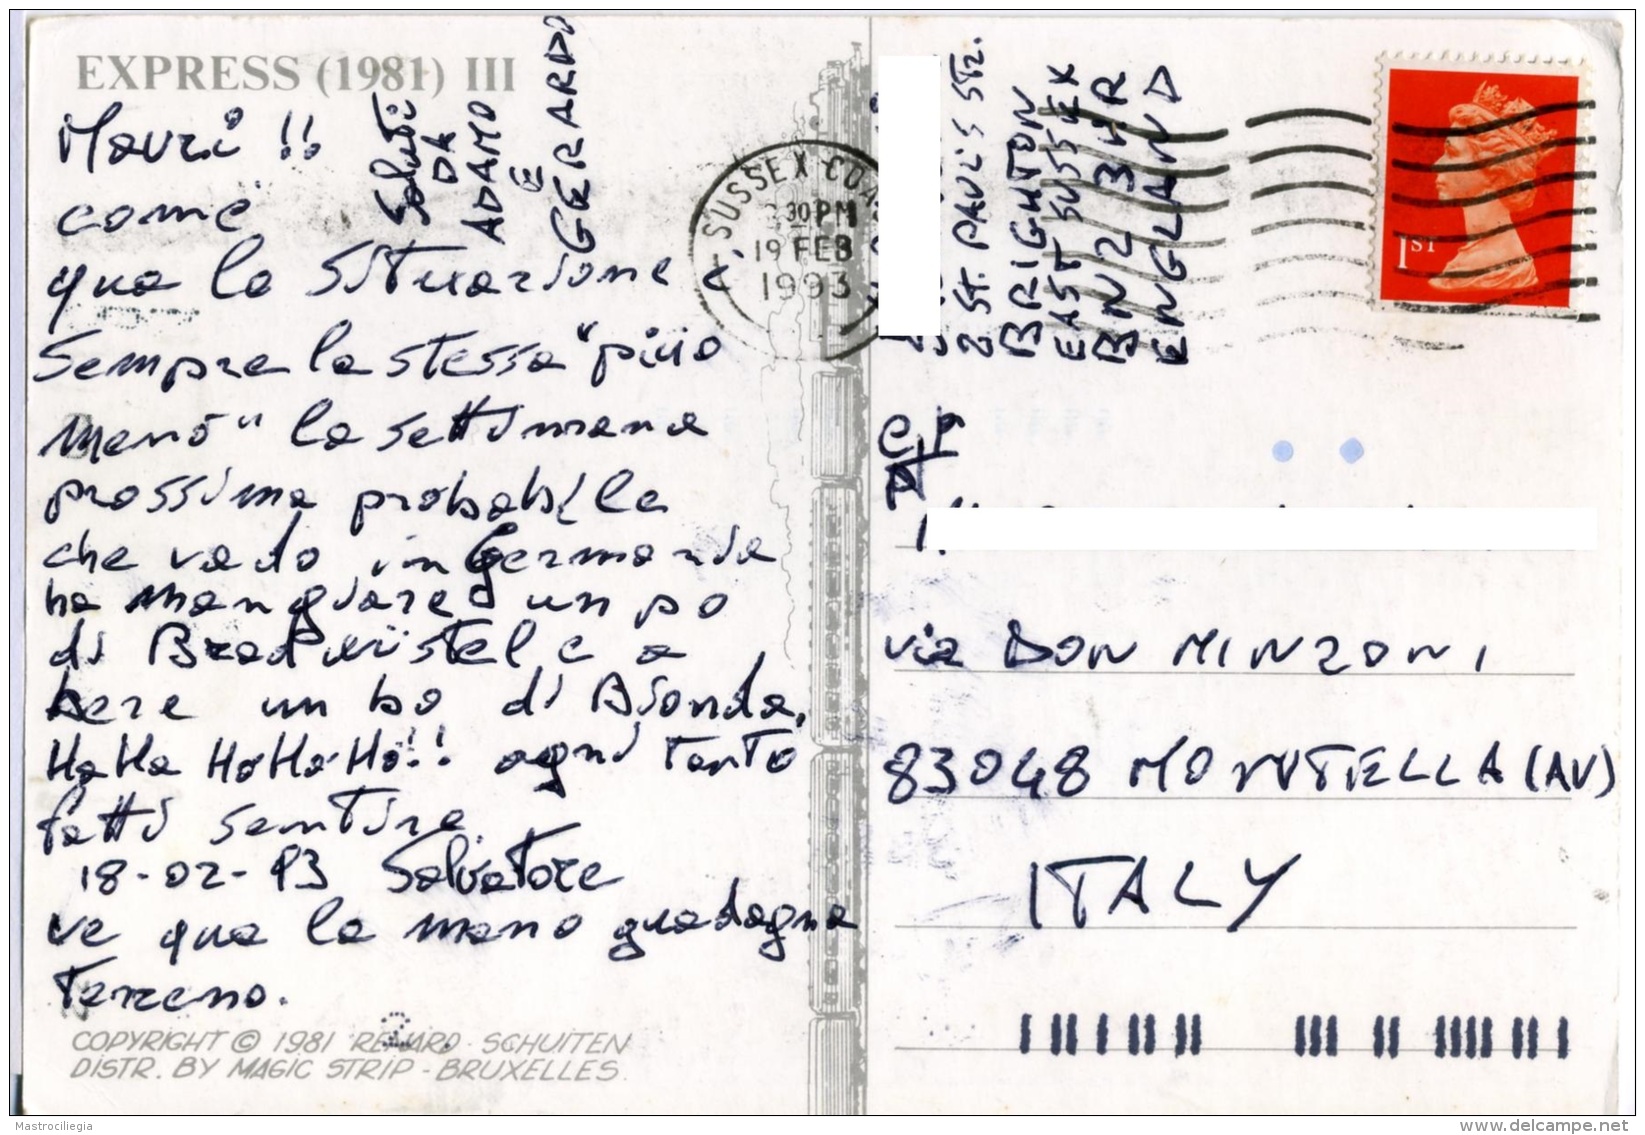 EXPRESS (1981) III
Mauri !!
come
qua la situazione è
sempre la stessa "più o
meno" la settimana
prossima probabile
che vado in Germania
ha mangiare un po
di Bradwistel e a
bere un bo di Bionda,
HaHa HoHoHo!! ogni tanto
fatti sentire.
18-02-93 Salvatore
ve qua la mano guadagna
terreno.
Saluti
DA
ADAMO
E
GERARDO
COPYRIGHT © 1981 RENARD - SCHUITEN
DISTR. BY MAGIC STRIP - BRUXELLES.
SUSSEX COA
30 PM
19 FEB
1993
2 ST. PAUL'S STR.
BRIGHTON
EAST SUSSEX
BN2 3HR
ENGLAND
1ST
via DON MINZONI
83048 MONTELLA (AV)
ITALY
Mastrociliegia
delcampe.net